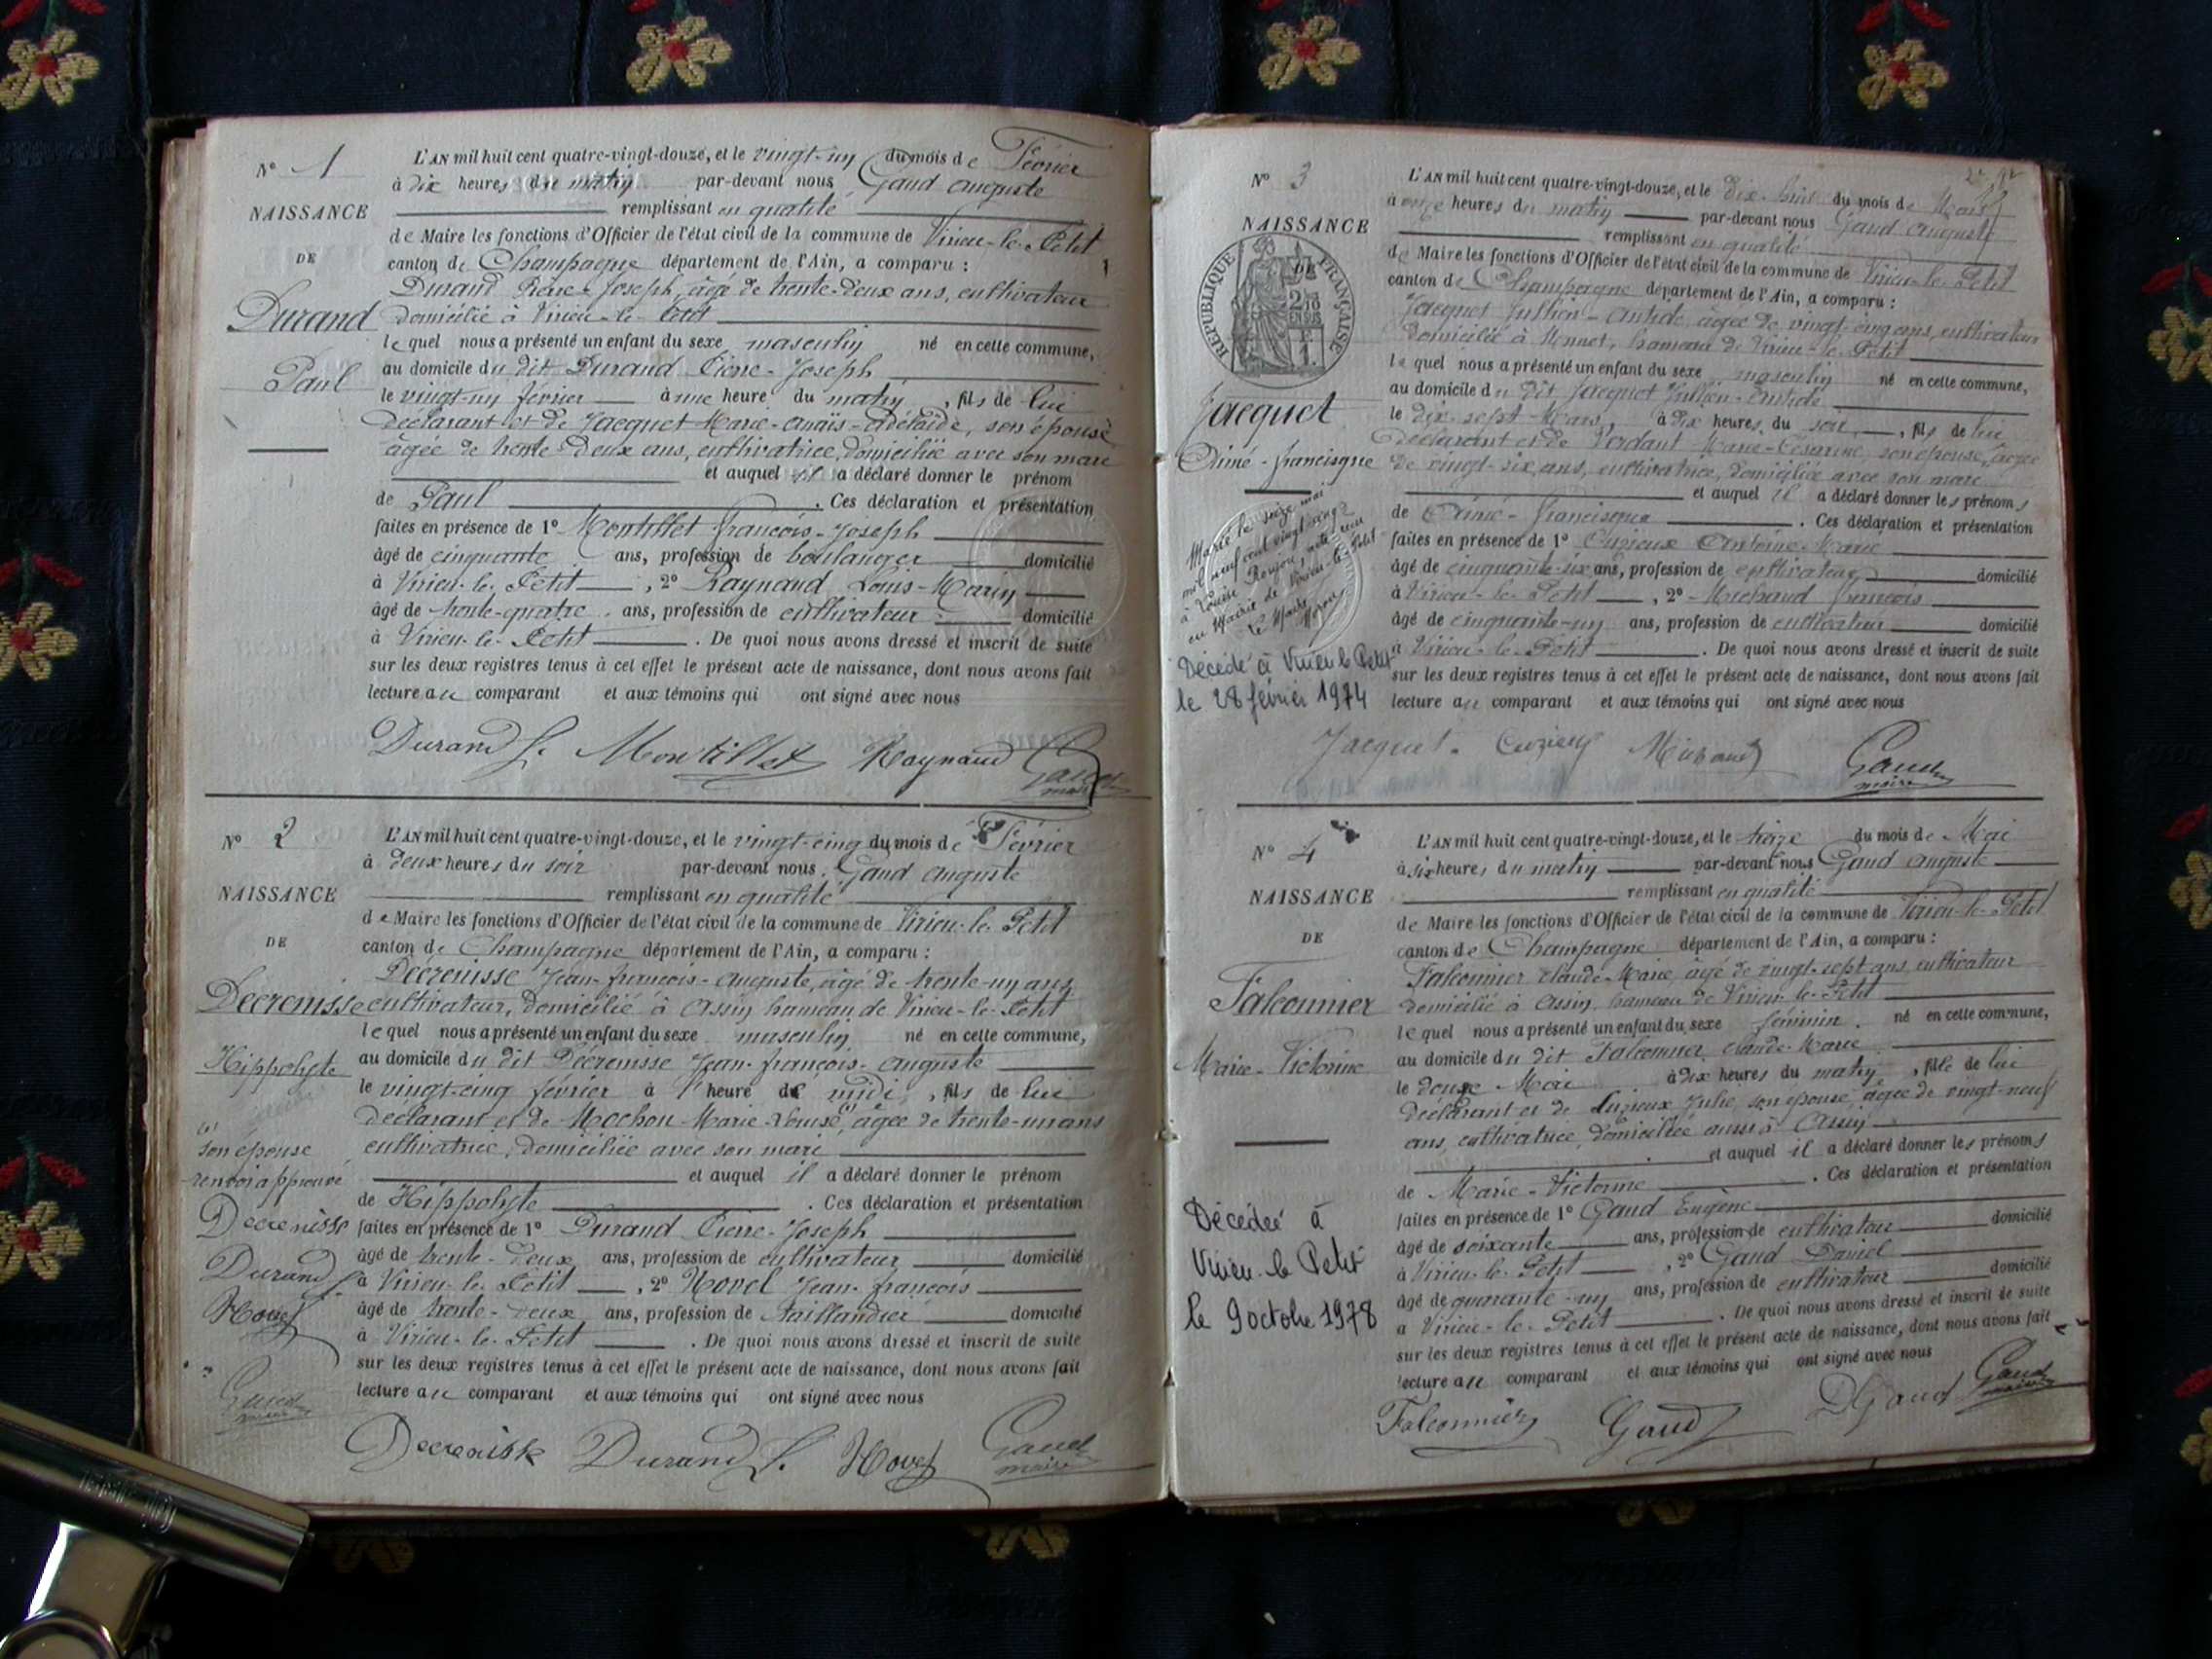 N° 1
NAISSANCE
DE
Durand
Paul
L'AN mil huit cent quatre-vingt-douze, et le vingt-un du mois de Février
à dix heures du matin par-devant nous Gaud Auguste
remplissant en qualité
de Maire les fonctions d'Officier de l'état civil de la commune de Virieu-le-Petit
canton de Champagne département de l'Ain, a comparu :
Durand Pierre-Joseph, âgé de trente-deux ans, cultivateur
domicilié à Virieu-le-Petit
lequel nous a présenté un enfant du sexe masculin né en cette commune,
au domicile du dit Durand Pierre-Joseph
le vingt-un février à une heure du matin, fils de lui
déclarant et de Jacquet Marie-Anaïs-Adélaïde, son épouse
âgée de trente-deux ans, cultivatrice, domiciliée avec son mari
et auquel il a déclaré donner le prénom
de Paul . Ces déclaration et présentation
faites en présence de 1° Montillet françois-Joseph
âgé de cinquante ans, profession de boulanger domicilié
à Virieu-le-Petit , 2° Raynaud Louis-Marin
âgé de trente-quatre ans, profession de cultivateur domicilié
à Virieu-le-Petit . De quoi nous avons dressé et inscrit de suite
sur les deux registres tenus à cet effet le présent acte de naissance, dont nous avons fait
lecture au comparant et aux témoins qui ont signé avec nous
Durand Montillet Raynaud Gaud
maire
N° 2
NAISSANCE
DE
Décrenisse
Hippolyte
(1)
son épouse
renvoi approuvé
Decrenisse
Durand
Hovel
Gaud
maire
L'AN mil huit cent quatre-vingt-douze, et le vingt-cinq du mois de Février
à deux heures du soir par-devant nous Gaud Auguste
remplissant en qualité
de Maire les fonctions d'Officier de l'état civil de la commune de Virieu-le-Petit
canton de Champagne département de l'Ain, a comparu :
Décrenisse Jean-françois-Auguste, âgé de trente-un ans
cultivateur, domicilié à Assin hameau de Virieu-le-Petit
lequel nous a présenté un enfant du sexe masculin né en cette commune,
au domicile du dit Décrenisse Jean-françois-Auguste
le vingt-cinq février à l'heure de midi, fils de lui
déclarant et de Mochon Marie-Louise (1) âgée de trente-un ans
cultivatrice, domiciliée avec son mari
et auquel il a déclaré donner le prénom
de Hippolyte . Ces déclaration et présentation
faites en présence de 1° Durand Pierre-Joseph
âgé de trente-deux ans, profession de cultivateur domicilié
à Virieu-le-Petit , 2° Hovel Jean-françois
âgé de trente-deux ans, profession de taillandier domicilié
à Virieu-le-Petit . De quoi nous avons dressé et inscrit de suite
sur les deux registres tenus à cet effet le présent acte de naissance, dont nous avons fait
lecture au comparant et aux témoins qui ont signé avec nous
Decrenisse Durand Hovel Gaud
maire
N° 3
NAISSANCE
DE
RÉPUBLIQUE FRANÇAISE
Jacquet
Aimé-francisque
Marié le seize mai
mil neuf cent vingt cinq
à Louise Roujou, acte dressé
en Mairie de Virieu-le-Petit
Le Maire
Décédé à Virieu le Petit
le 28 février 1974
L'AN mil huit cent quatre-vingt-douze, et le dix-huit du mois de Mars
à onze heures du matin par-devant nous Gaud Auguste
remplissant en qualité
de Maire les fonctions d'Officier de l'état civil de la commune de Virieu-le-Petit
canton de Champagne département de l'Ain, a comparu :
Jacquet Jullien-Anthide, âgé de vingt-cinq ans, cultivateur
domicilié à Monnet, hameau de Virieu-le-Petit
lequel nous a présenté un enfant du sexe masculin né en cette commune,
au domicile du dit Jacquet Jullien-Anthide
le dix-sept Mars, à dix heures du soir, fils de lui
déclarant et de Verdant Marie-Césarine, son épouse, âgée
de vingt-six ans, cultivatrice, domiciliée avec son mari
et auquel il a déclaré donner les prénoms
de Aimé-francisque . Ces déclaration et présentation
faites en présence de 1° Cuzieux Antoine-Marie
âgé de cinquante-six ans, profession de cultivateur domicilié
à Virieu-le-Petit , 2° Michaud françois
âgé de cinquante-un ans, profession de cultivateur domicilié
à Virieu-le-Petit . De quoi nous avons dressé et inscrit de suite
sur les deux registres tenus à cet effet le présent acte de naissance, dont nous avons fait
lecture au comparant et aux témoins qui ont signé avec nous
Jacquet Cuzieux Michaud Gaud
maire
N° 4
NAISSANCE
DE
Falconnier
Marie-Victorine
Décédée à
Virieu-le Petit
le 9 octobre 1978
L'AN mil huit cent quatre-vingt-douze, et le treize du mois de Mai
à six heures du matin par-devant nous Gaud Auguste
remplissant en qualité
de Maire les fonctions d'Officier de l'état civil de la commune de Virieu-le-Petit
canton de Champagne département de l'Ain, a comparu :
Falconnier Claude-Marie, âgé de vingt-sept ans, cultivateur
domicilié à Assin, hameau de Virieu-le-Petit
lequel nous a présenté un enfant du sexe féminin né en cette commune,
au domicile du dit Falconnier Claude-Marie
le douze Mai à dix heures du matin, fille de lui
déclarant et de Cuzieux Julie, son épouse, âgée de vingt-neuf
ans, cultivatrice, domiciliée aussi à Assin
et auquel il a déclaré donner les prénoms
de Marie-Victorine . Ces déclaration et présentation
faites en présence de 1° Gaud Eugène
âgé de soixante ans, profession de cultivateur domicilié
à Virieu-le-Petit , 2° Gaud Daniel
âgé de quarante-un ans, profession de cultivateur domicilié
à Virieu-le-Petit . De quoi nous avons dressé et inscrit de suite
sur les deux registres tenus à cet effet le présent acte de naissance, dont nous avons fait
lecture au comparant et aux témoins qui ont signé avec nous
Falconnier Gaud DGaud Gaud
maire